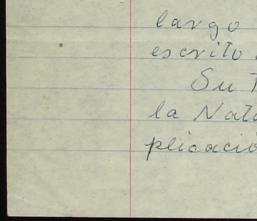 largo
escrito
Su
la Nat
plicacio